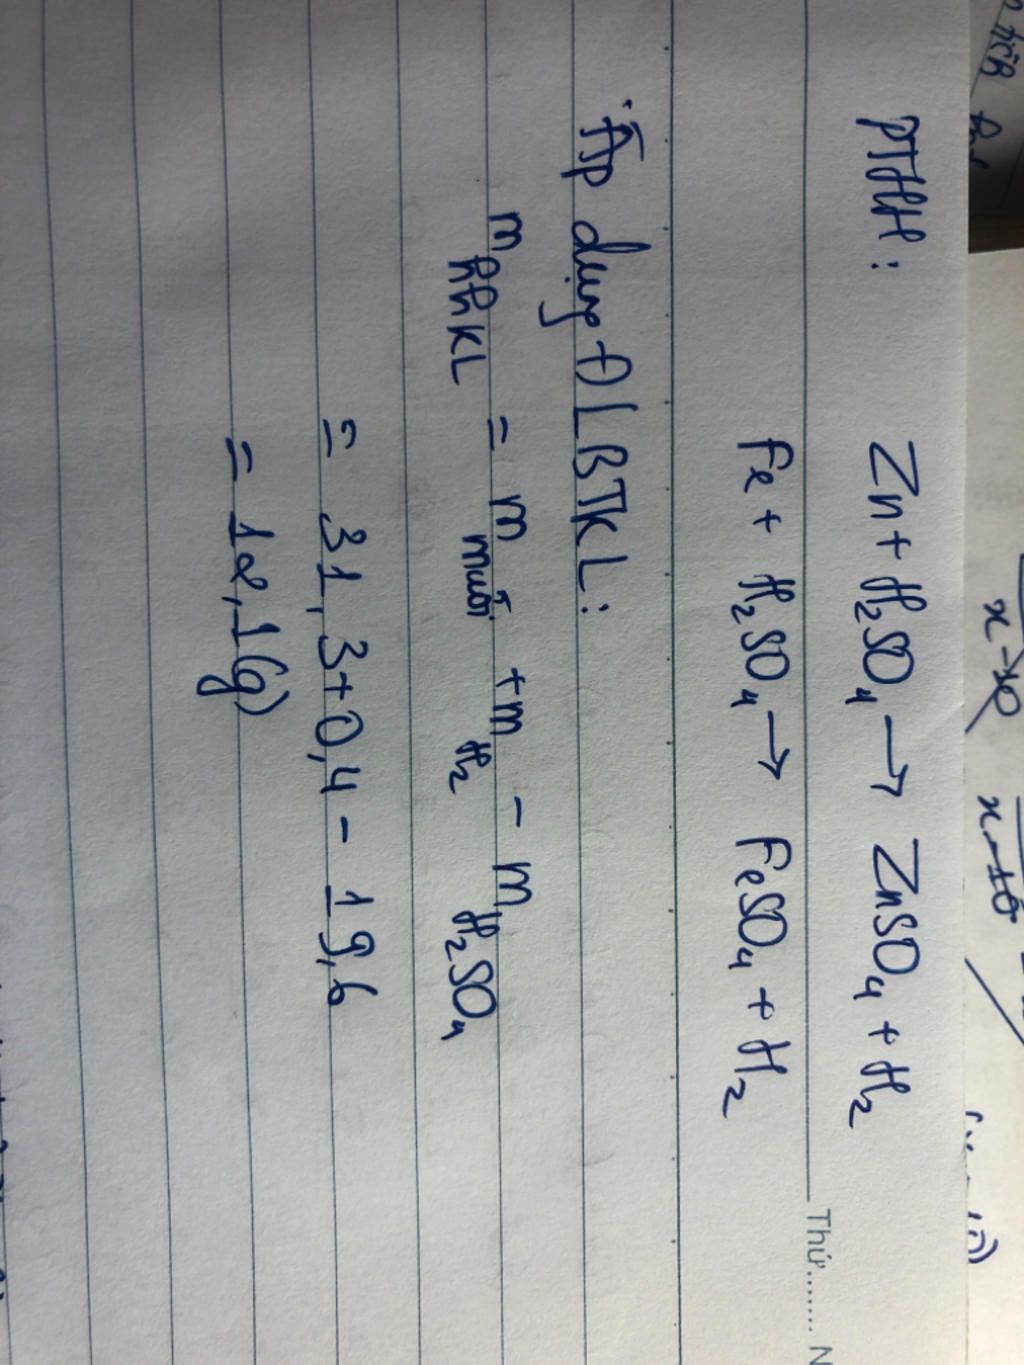 PTHH: Zn + H₂SO₄ → ZnSO₄ + H₂
Fe + H₂SO₄ → FeSO₄ + H₂
Áp dụng ĐLBTKL:
m hhKL = m muối + m H₂ - m H₂SO₄
= 31,3 + 0,4 - 19,6
= 12,1(g)
Thứ....... N
x-10
x-10